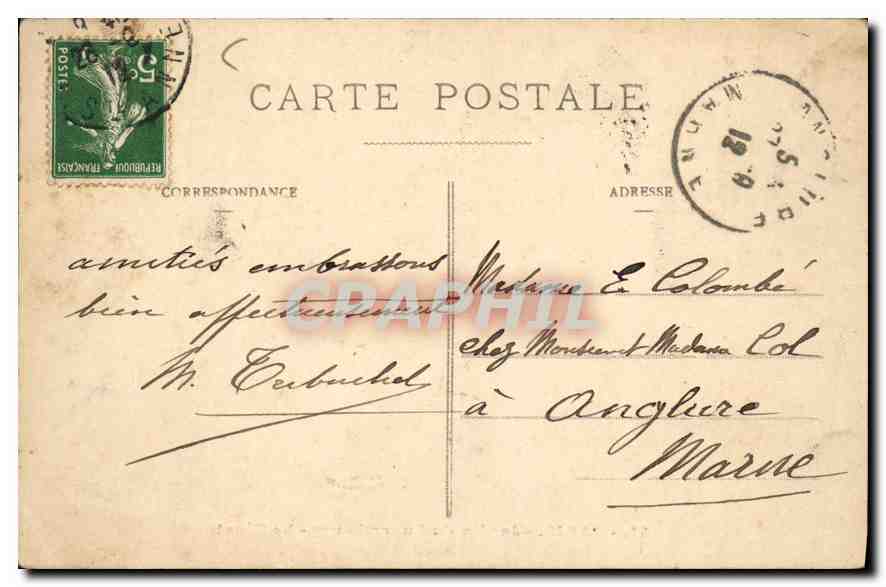 5c
POSTES
REPUBLIQUE FRANÇAISE
CARTE POSTALE
CORRESPONDANCE
ADRESSE
ANGLURE
MARNE
amitiés embrassons
bien affectueusement
M.
Madame E. Colombé
chez Monsieur et Madame Col
à Anglure
Marne
CPAPHIL